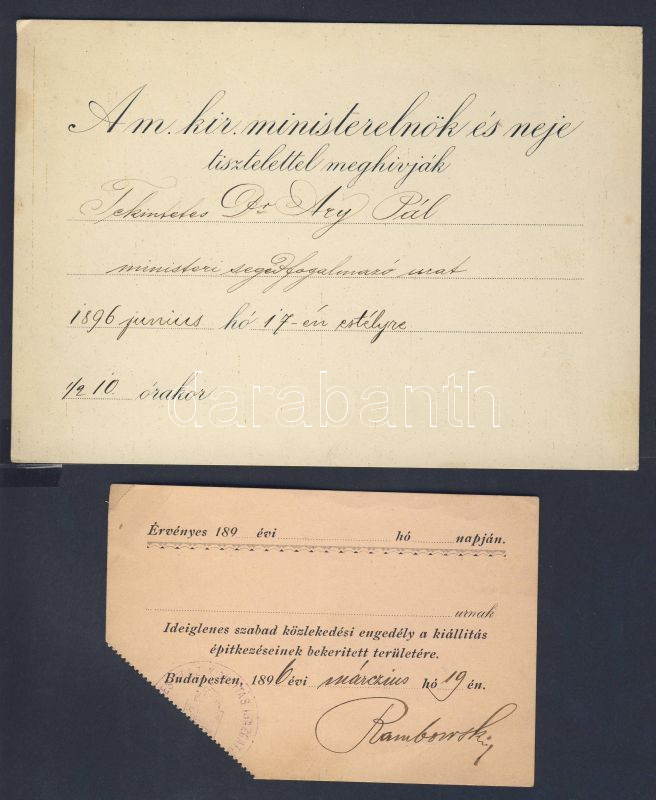 A m. kir. ministerelnök és neje
tisztelettel meghivják
Tekintetes Dr Ary Pál
ministeri segédfogalmazó urat
1896 junius hó 17-én estélyre
1/2 10. órakor
darabanth
Érvényes 189 évi hó napján.
urnak
Ideiglenes szabad közlekedési engedély a kiállitás
épitkezéseinek bekeritett területére.
Budapesten, 1896 évi márczius hó 19 én.
Rambowszky